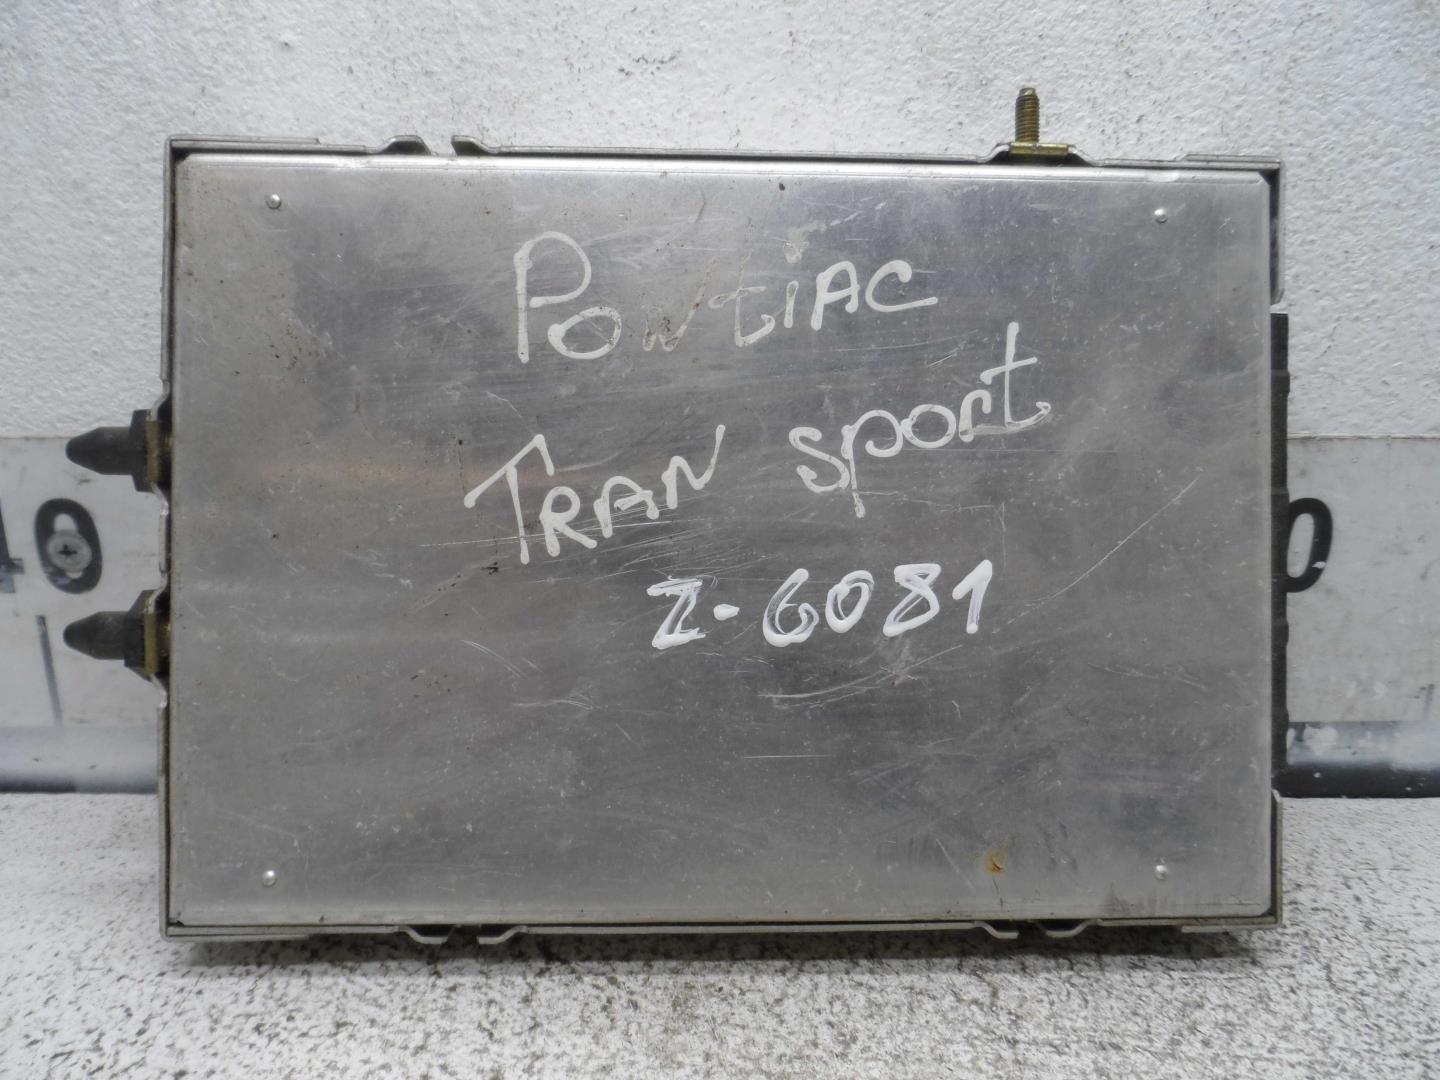 Pontiac
TRAN sport
Z-6081
40
0